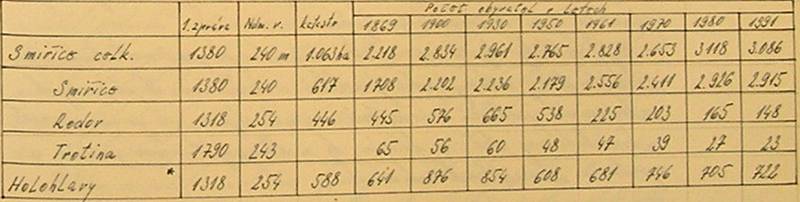 Počet obyvatel v letech
1. zpráva Nadm. v. katastr 1869 1900 1930 1950 1961 1970 1980 1991
Smiřice celk. 1380 240 m 1.063 ha 2.218 2.834 2.961 2.765 2.828 2.653 3.118 3.086
Smiřice 1380 240 617 1708 2.202 2.236 2.179 2.556 2.411 2.926 2.915
Rodov 1318 254 446 445 576 665 538 225 203 165 148
Trotina 1790 243 65 56 60 48 47 39 27 23
Holohlavy * 1318 254 588 641 876 854 608 681 746 705 722